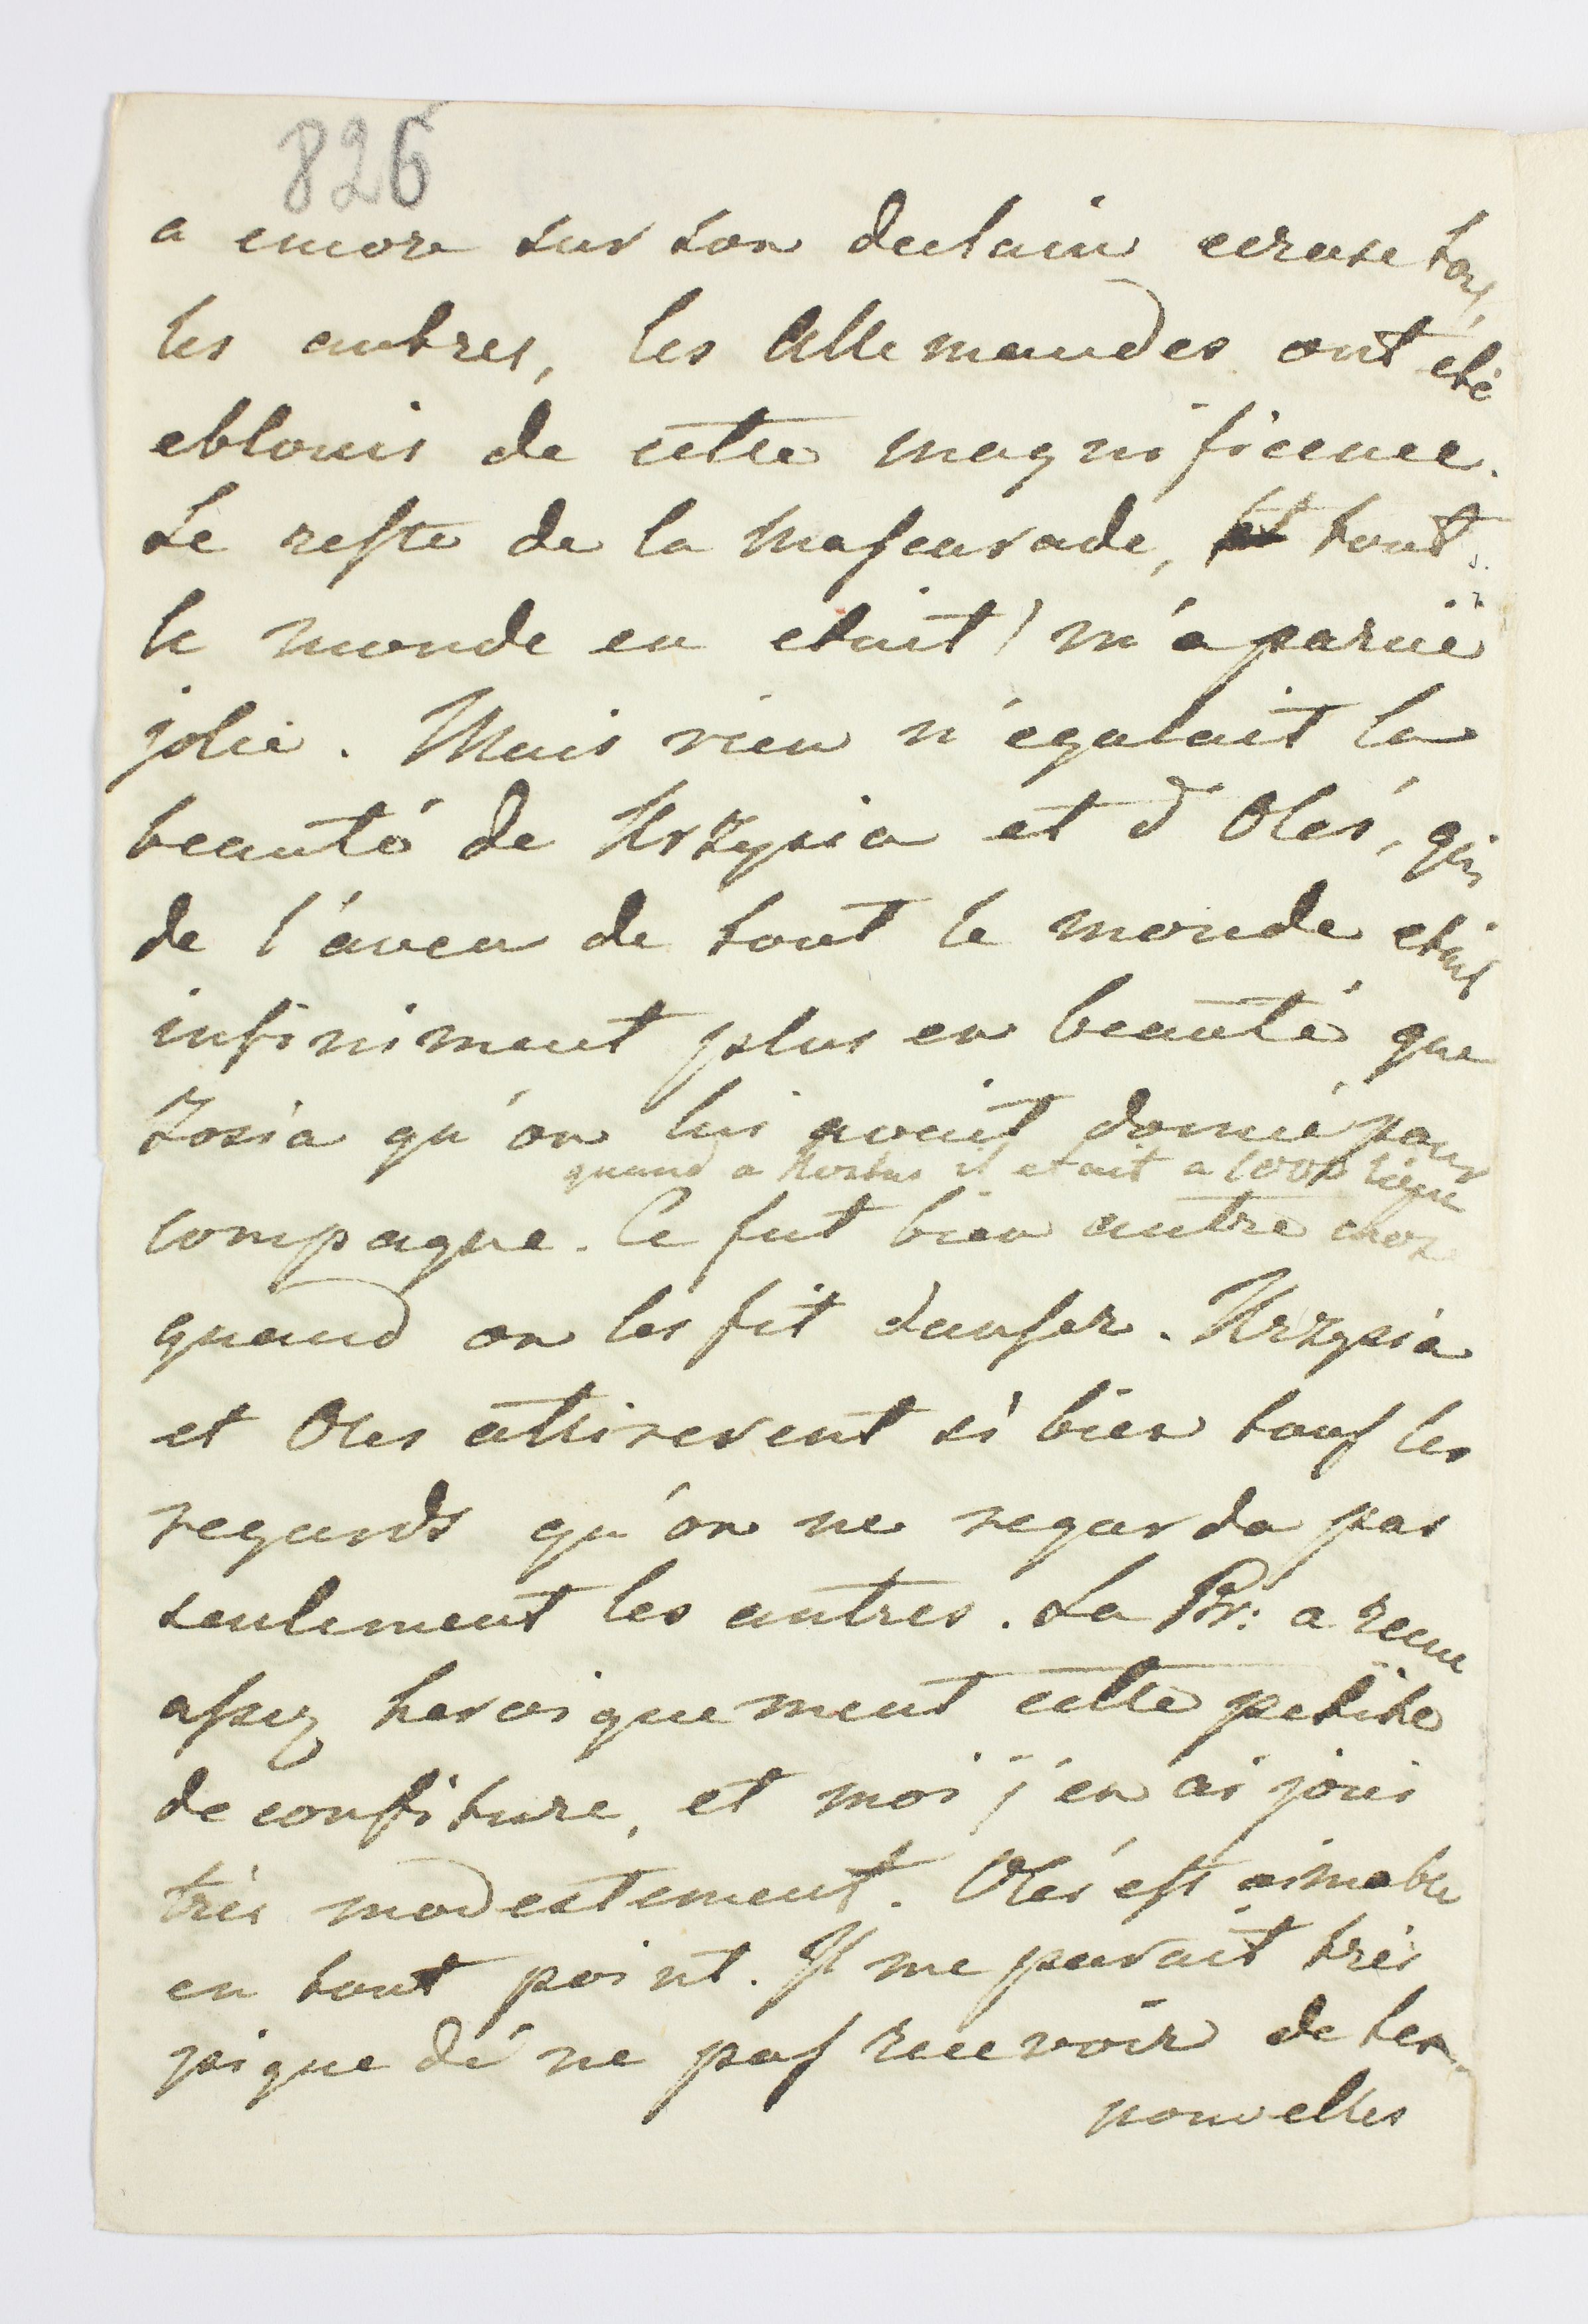 826
a encore sur son declain ecrase tous
les autres, les Allemandes ont été
eblouis de cette magnificence.
Le reste de la mascarade, et tout
le monde en etait) m'a paruë
jolie. Mais rien n'egalait la
beauté de Krzysia et d'Oleś, qui
de l'aveu de tout le monde etait
infiniment plus en beauté que
Zosia qu'on lui avait donné pour
quand a Kostus il etait a 1000 lieue
compagne. Ce fut bien autre chose
quand on les fit danser. Krzysia
et Oles attirerent si bien tous les
regards qu'on ne regarda pas
seulement les autres. La Pr: a recue
assez heroiquement cette petite
deconfiture, et moi j'en ai joui
très modestement. Oleś est aimable
en tout point. Il me parait très
pique de ne pas recevoir de tes
nouvelles